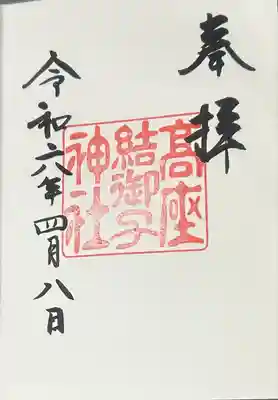 奉拝
高座
結御子
神社
令和六年四月八日